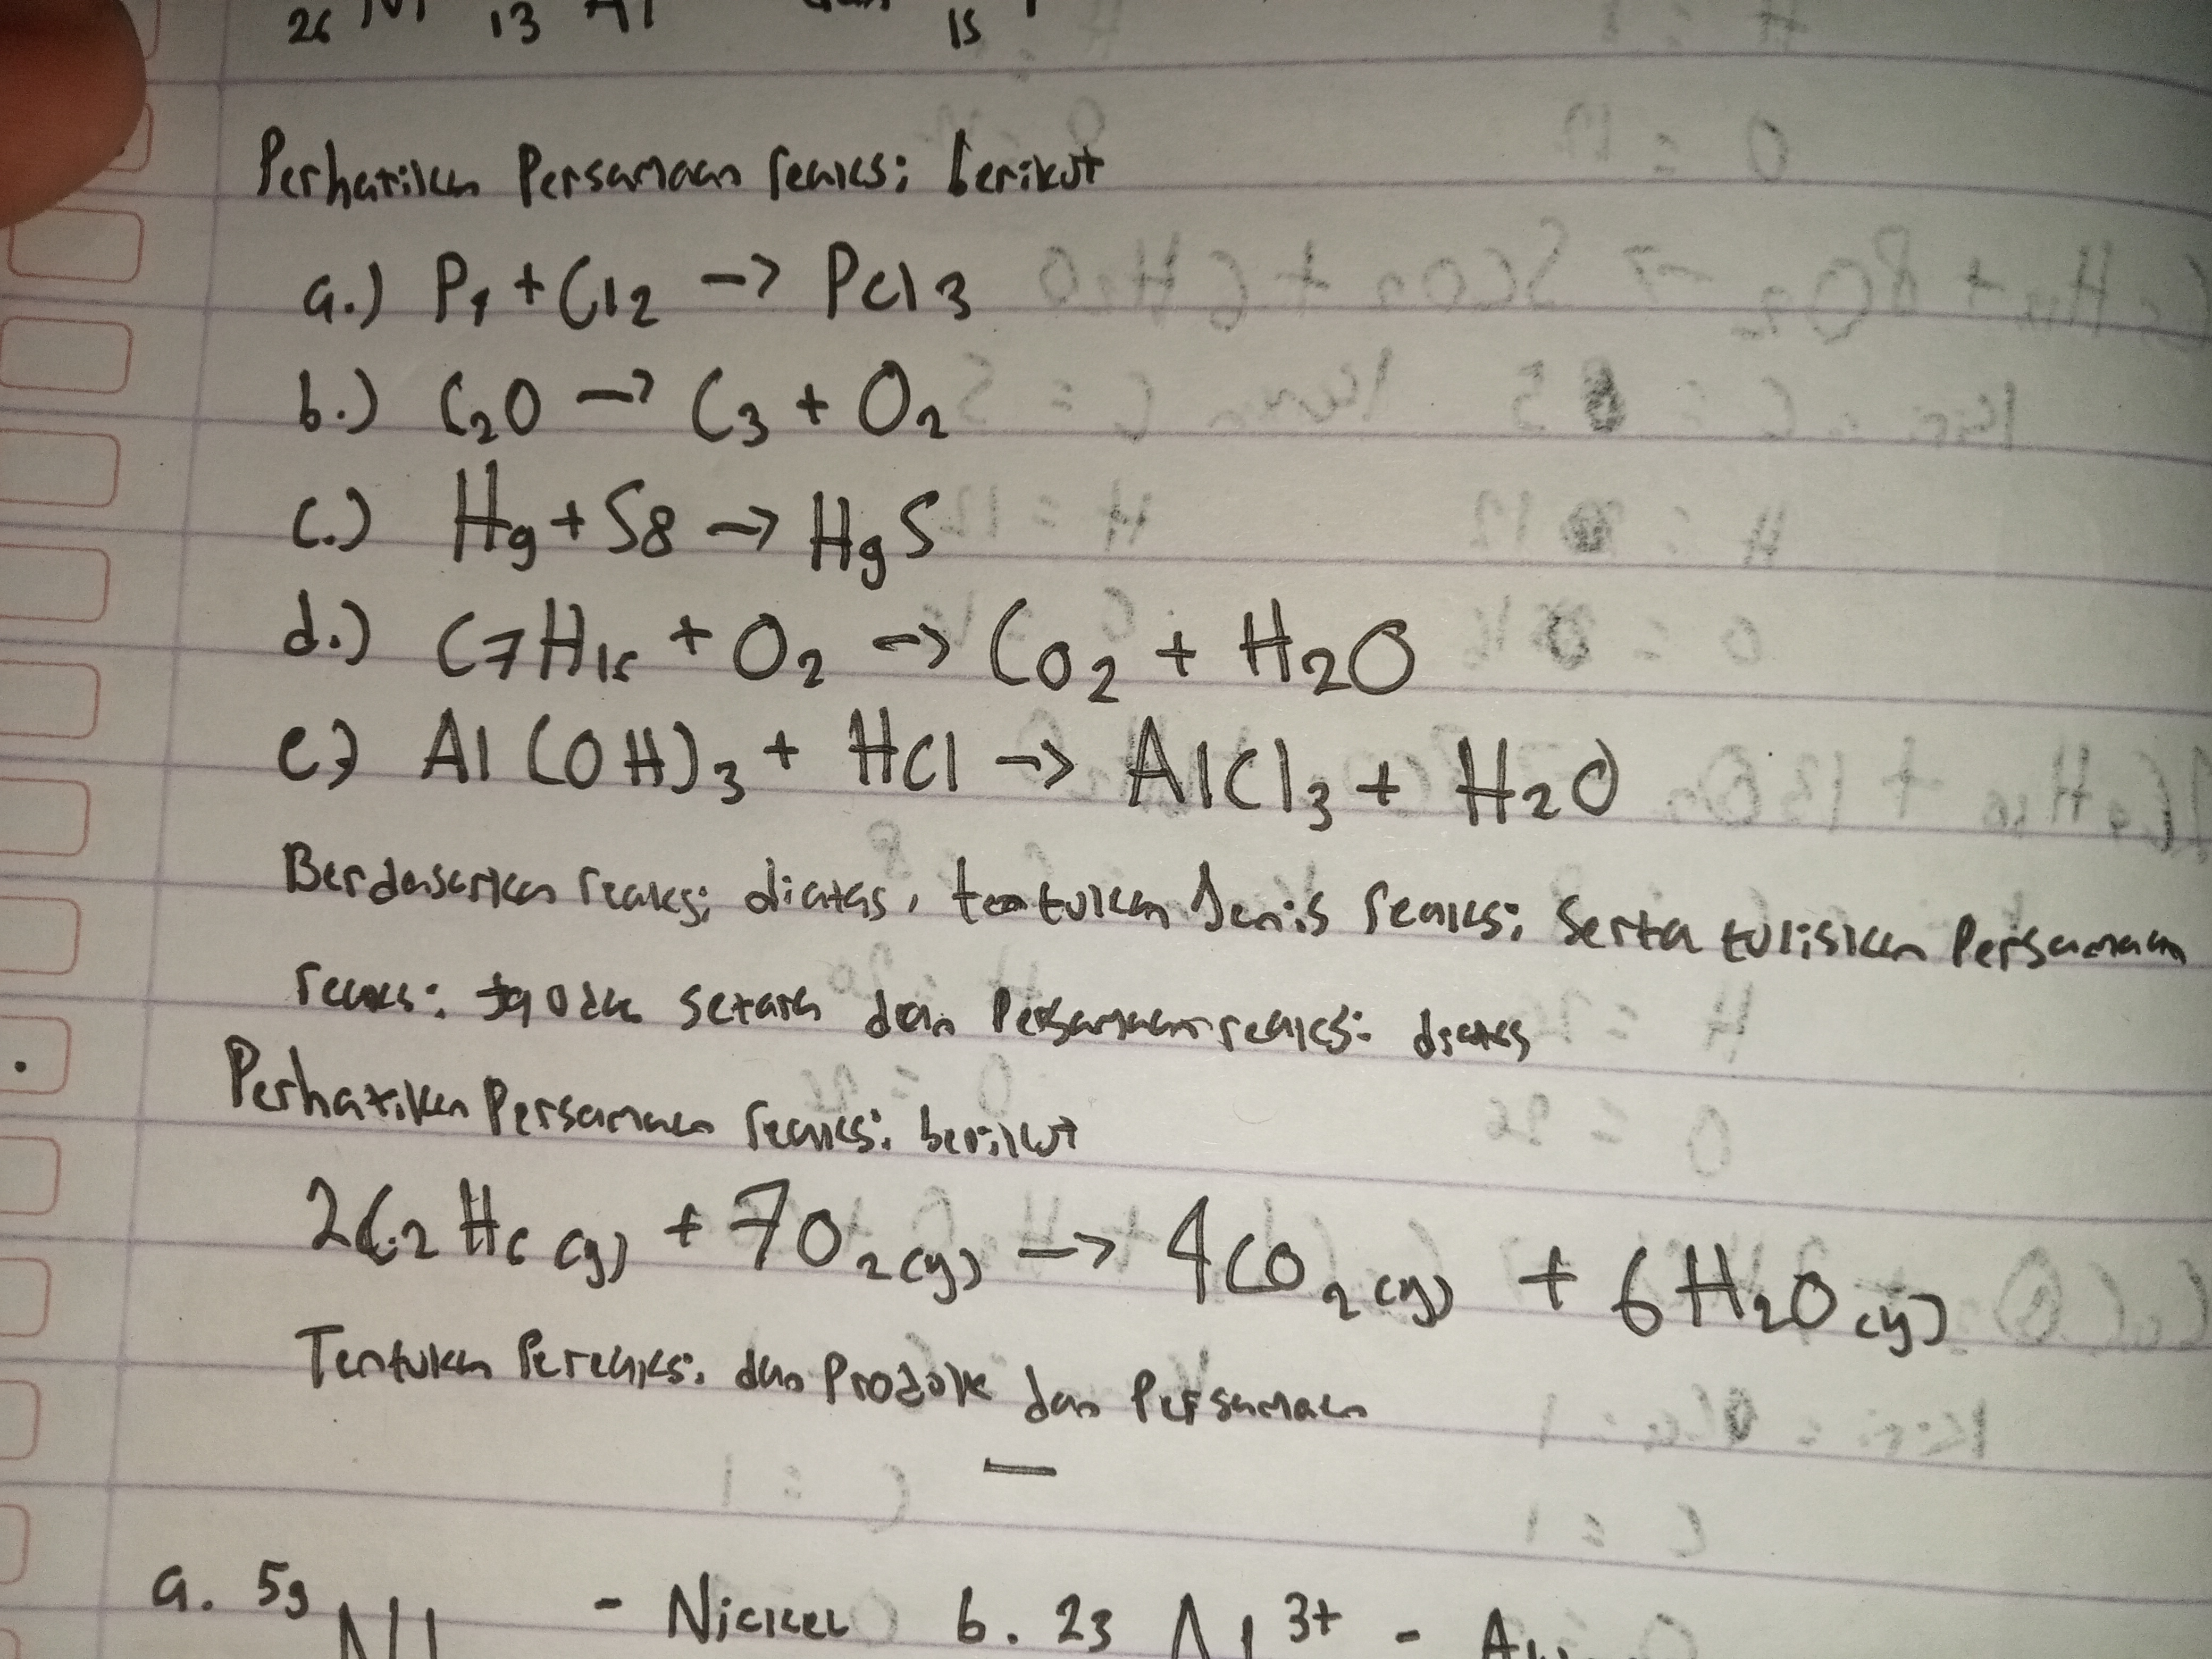 26 13 15
Perhatikan Persamaan reaksi berikut
a.) P4 + Cl2 -> PCl3
b.) C2O -> C3 + O2
c.) Hg + S8 -> HgS
d.) C7H16 + O2 -> CO2 + H2O
e) Al(OH)3 + HCl -> AlCl3 + H2O
Berdasarkan reaksi diatas, tentukan Jenis reaksi Serta tuliskan Persamaan
reaksi setara dan Persamaan reaksi diatas
Perhatikan Persamaan reaksi berikut
2C2H6(g) + 7O2(g) -> 4CO2(g) + 6H2O(g)
Tentukan Pereaksi dan Produk dan Persamaan
a. 59 Ni - Nickel b. 23 Al 3+ -